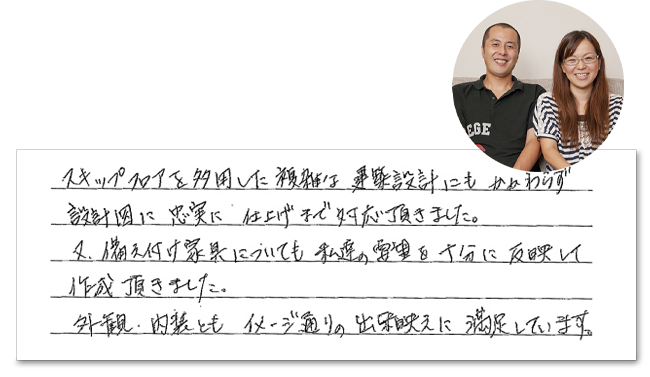 EGE
スキップフロアを多用した複雑な建築設計にもかかわらず
設計図に忠実に仕上げまで対応頂きました。
又、備え付け家具についても私達の要望を十分に反映して
作成頂きました。
外観・内装ともイメージ通りの出来映えに満足しています。